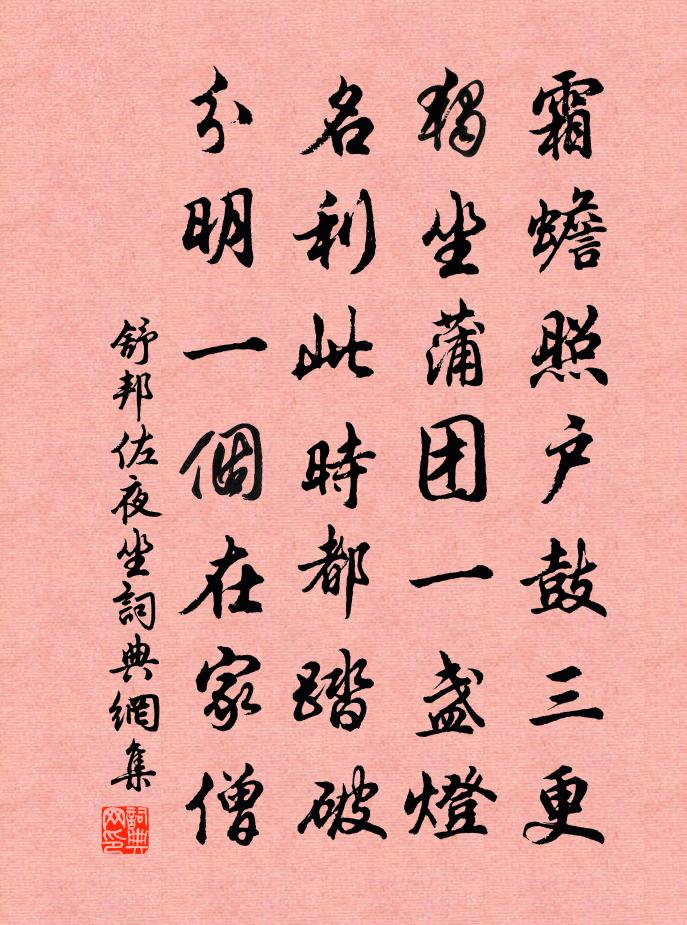 霜蟾照户鼓三更
獨坐蒲团一盏燈
名利此時都踏破
分明一個在家僧
舒邦佐夜坐詞典網集
詞典网印